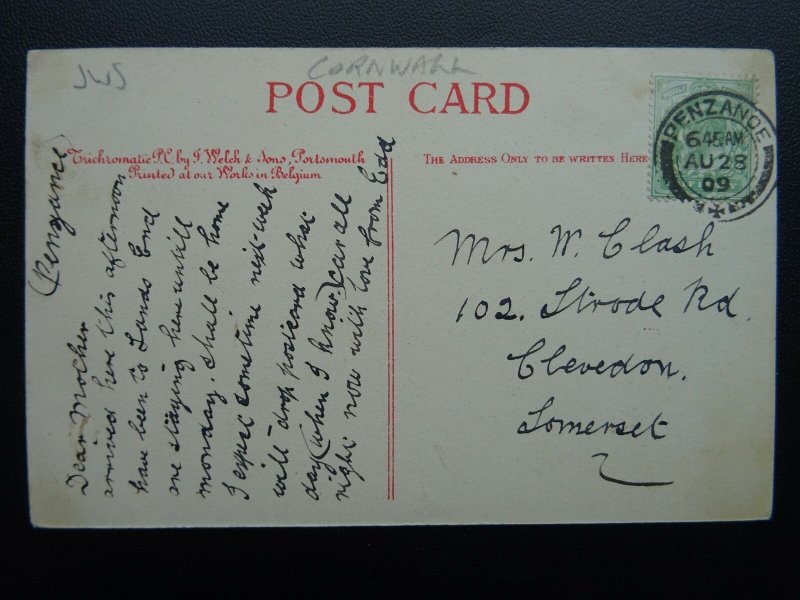 JWS
CORNWALL
POST CARD
Trichromatic P.C. by J. Welch & Sons, Portsmouth
Printed at our Works in Belgium
THE ADDRESS ONLY TO BE WRITTEN HERE
PENZANCE
6.45 AM
AU 28
09
(Penzance)
Dear Mother
arrived here this afternoon
have been to Lands End
are staying here untill
monday. shall be home
I expect sometime next week
will drop postcard what
day (when I know) car all
right now with love from Edd
Mrs. W. Clash
102. Strode Rd.
Clevedon.
Somerset